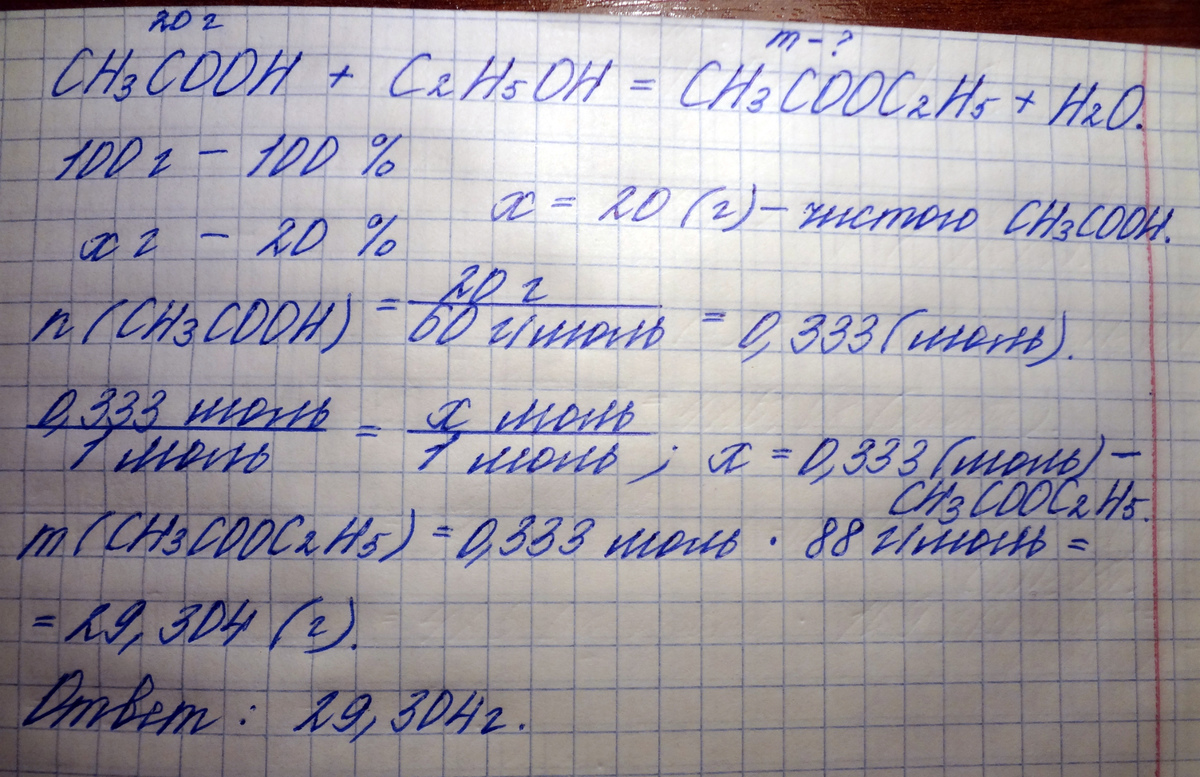 20 г
m - ?
CH3COOH + C2H5OH = CH3COOC2H5 + H2O.
100 г - 100 %
x г - 20 %
x = 20 (г) - чистого CH3COOH.
n (CH3COOH) = 20 г / 60 г/моль = 0,333 (моль).
0,333 моль / 1 моль = x моль / 1 моль ; x = 0,333 (моль) -
CH3COOC2H5.
m (CH3COOC2H5) = 0,333 моль · 88 г/моль =
= 29,304 (г).
Ответ : 29,304 г.